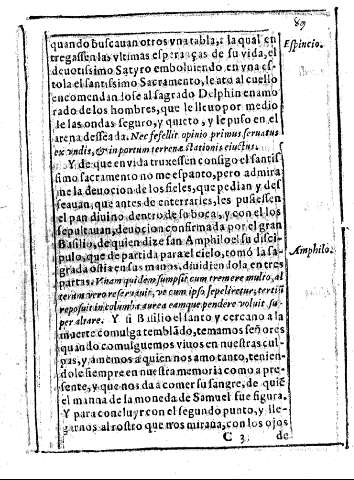 89
quando buscauan otros vna tabla, i la qual en
tregassen las vltimas esperanças de su vida, el
deuotissimo Satyro emboluiendo en vna es-
tola el santissimo Sacramento, le ato al cuello
encomendandose al sagrado Delphin enamo
rado de los hombres, que le lleuo por medio
de las ondas seguro, y quieto, y le puso en el
arena desseada. Nec fefellit opinio primus seruatus
ex vndis, & in portum terrenæ stationis eiectus.
Espincio.
Y de que en vida truxessen consigo el santis
simo sacramento no me espanto, pero admira
me la deuocion de los fieles, que pedian y des
seauan, que antes de enterrarles, les pusiessen
el pan diuino dentro de su boca, y con el los
sepultauan, deuocion confirmada por el gran
Basilio, de quien dize san Amphilo el su disci-
pulo, que de partida para el cielo, tomó la sa-
grada ostia en sus manos, diuidiendola en tres
partes. Vnam quidem sumpsit cum tremere multo, al
teram vero reseruauit, vt cum ipso sepeliretur, tertiã
reposuit in columba aurea eamque pendere voluit su-
per altare. Y si Basilio el santo y cercano a la
muerte comulga temblãdo, temamos señores
quando comulguemos viuos en nuestras cul-
pas, y amemos a quien nos amo tanto, tenien-
dole siempre en nuestra memoria como a pre-
sente, y que nos da a comer su sangre, de quiẽ
el manna de la moneda de Samuel fue figura.
Amphilo.
Y para concluyr con el segundo punto, y lle-
garnos al rostro que nos mirana, con los ojos
C 3 de